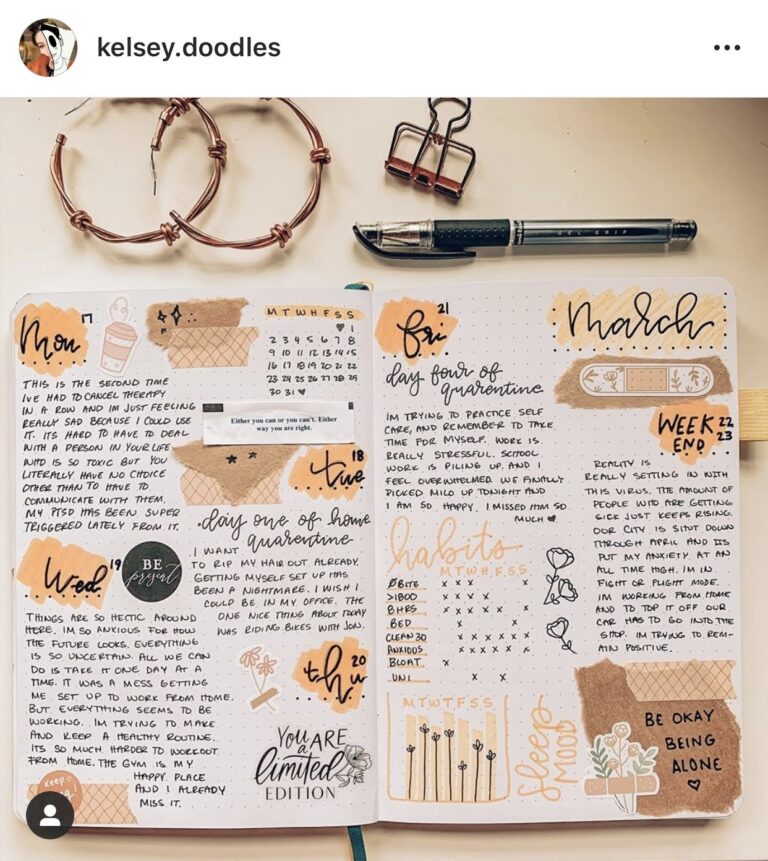 kelsey.doodles
GEL GRIP
Mon 17
THIS IS THE SECOND TIME
IVE HAD TO CANCEL THERAPY
IN A ROW AND IM JUST FEELING
REALLY SAD BECAUSE I COULD USE
IT. ITS HARD TO HAVE TO DEAL
WITH A PERSON IN YOUR LIFE
WHO IS SO TOXIC BUT YOU
LITERALLY HAVE NO CHOICE
OTHER THAN TO HAVE TO
COMMUNICATE WITH THEM.
MY PTSD HAS BEEN SUPER
TRIGGERED LATELY FROM IT.
M T W H F S S
♥ 1
2 3 4 5 6 7 8
9 10 11 12 13 14 15
16 17 18 19 20 21 22
23 24 25 26 27 28 29
30 31 ♥
Either you can or you can't. Either
way you are right.
tue 18
day one of home
quarentine
I WANT
TO RIP MY HAIR OUT ALREADY.
GETTING MYSELF SET UP HAS
BEEN A NIGHTMARE. I WISH I
COULD BE IN MY OFFICE. THE
ONE NICE THING ABOUT TODAY
WAS RIDING BIKES WITH JON.
Wed 19
BE
present
THINGS ARE SO HECTIC AROUND
HERE. IM SO ANXIOUS FOR HOW
THE FUTURE LOOKS. EVERYTHING
IS SO UNCERTAIN. ALL WE CAN
DO IS TAKE IT ONE DAY AT A
TIME. IT WAS A MESS GETTING
ME SET UP TO WORK FROM HOME.
BUT EVERYTHING SEEMS TO BE
WORKING. IM TRYING TO MAKE
AND KEEP A HEALTHY ROUTINE.
ITS SO MUCH HARDER TO WORKOUT
FROM HOME. THE GYM IS MY
HAPPY PLACE
AND I ALREADY
MISS IT.
KEEP
thu 20
YOU ARE
a
limited
EDITION
fri 21
day four of
quarentine
IM TRYING TO PRACTICE SELF
CARE, AND REMEMBER TO TAKE
TIME FOR MYSELF. WORK IS
REALLY STRESSFUL. SCHOOL
WORK IS PILING UP. AND I
FEEL OVERWHELMED. WE FINALLY
PICKED MILO UP TONIGHT AND
I AM SO HAPPY. I MISSED HIM SO
MUCH ♥
habits
M T W H. F. S. S.
ØBITE x x x x
>1800 x x x
8HRS x x x x x
BED x x
CLEAN 30 x x x x x x
ANXIOUS x x x x x x x
BLOAT x
UNI x x
M T W T F S S
Sleep
MOOD
March
WEEK 22
END 23
REALITY IS
REALLY SETTING IN WITH
THIS VIRUS. THE AMOUNT OF
PEOPLE WHO ARE GETTING
SICK JUST KEEPS RISING.
OUR CITY IS SHUT DOWN
THROUGH APRIL AND ITS
PUT MY ANXIETY AT AN
ALL TIME HIGH. IM IN
FIGHT OR FLIGHT MODE.
IM WORKING FROM HOME
AND TO TOP IT OFF OUR
CAR HAS TO GO INTO THE
SHOP. IM TRYING TO REM-
AIN POSITIVE.
BE OKAY
BEING
ALONE
♡